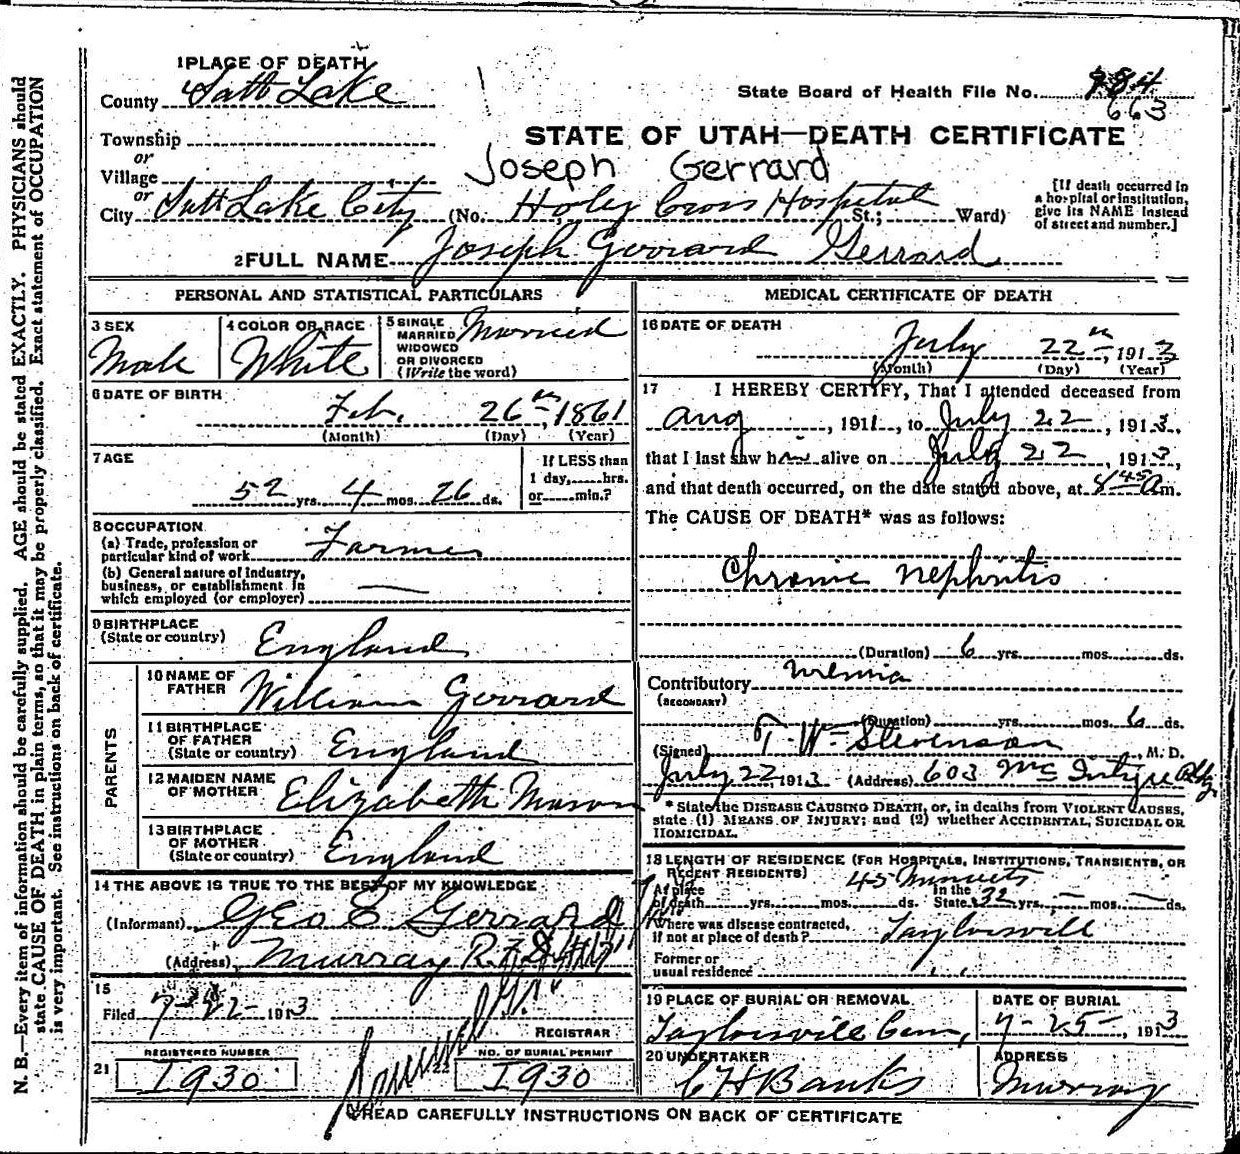 1 PLACE OF DEATH
County Salt Lake
State Board of Health File No. 984
663
Township
or
STATE OF UTAH—DEATH CERTIFICATE
Village
Joseph Gerrard
or
City Salt Lake City (No. Holy Cross Hospital St.; Ward)
[If death occurred in
a hospital or institution,
give its NAME instead
of street and number.]
2 FULL NAME Joseph Gerrard Gerrard
PERSONAL AND STATISTICAL PARTICULARS
3 SEX
Male
4 COLOR OR RACE
White
5 SINGLE
MARRIED
WIDOWED
OR DIVORCED
(Write the word)
Married
6 DATE OF BIRTH
Feb. 26th, 1861
(Month) (Day) (Year)
7 AGE
52 yrs. 4 mos. 26 ds.
If LESS than
1 day, hrs.
or min.?
8 OCCUPATION
(a) Trade, profession or
particular kind of work Farmer
(b) General nature of industry,
business, or establishment in
which employed (or employer) —
9 BIRTHPLACE
(State or country) England
PARENTS
10 NAME OF
FATHER William Gerrard
11 BIRTHPLACE
OF FATHER
(State or country) England
12 MAIDEN NAME
OF MOTHER Elizabeth Mason
13 BIRTHPLACE
OF MOTHER
(State or country) England
14 THE ABOVE IS TRUE TO THE BEST OF MY KNOWLEDGE
(Informant) Geo E Gerrard
(Address) Murray R.F.D. #17
15
Filed 7-22- 1913
REGISTRAR
21 REGISTERED NUMBER
1930
22 NO. OF BURIAL PERMIT
1930
MEDICAL CERTIFICATE OF DEATH
16 DATE OF DEATH
July 22th, 1913
(Month) (Day) (Year)
17 I HEREBY CERTIFY, That I attended deceased from
Aug, 1911, to July 22, 1913,
that I last saw him alive on July 22, 1913,
and that death occurred, on the date stated above, at 8 45 a m.
The CAUSE OF DEATH* was as follows:
Chronic Nephritis
(Duration) 6 yrs. mos. ds.
Contributory Uremia
(SECONDARY)
(Duration) yrs. mos. 6 ds.
(Signed) T. W. Stevenson, M. D.
July 22, 1913 (Address) 603 McIntyre Bldg.
* State the DISEASE CAUSING DEATH, or, in deaths from VIOLENT CAUSES,
state (1) MEANS OF INJURY; and (2) whether ACCIDENTAL, SUICIDAL OR
HOMICIDAL.
18 LENGTH OF RESIDENCE (FOR HOSPITALS, INSTITUTIONS, TRANSIENTS, OR
RECENT RESIDENTS) 45 Minuets
At place
of death yrs. mos. ds.
In the
State 32 yrs. — mos. — ds.
Where was disease contracted,
if not at place of death? Taylorsvill
Former or
usual residence
19 PLACE OF BURIAL OR REMOVAL
Taylorsville Cem,
DATE OF BURIAL
7-25-, 1913
20 UNDERTAKER
C H Banks
ADDRESS
Murray
READ CAREFULLY INSTRUCTIONS ON BACK OF CERTIFICATE
N. B.—Every item of information should be carefully supplied. AGE should be stated EXACTLY. PHYSICIANS should
state CAUSE OF DEATH in plain terms, so that it may be properly classified. Exact statement of OCCUPATION
is very important. See instructions on back of certificate.